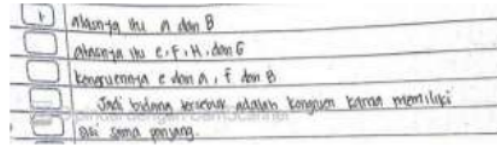 alasnya itu A dan B
atasnya itu e, F, H, dan G
kongruennya e dan A, F dan B
Jadi bidang tersebut adalah kongruen karna memiliki
sisi sama panjang.